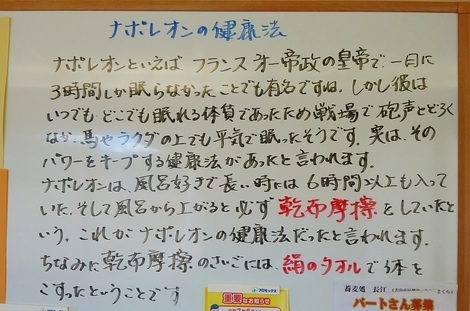 ナポレオンの健康法
ナポレオンといえば フランス第一帝政の皇帝で、一日に
3時間しか眠らなかったことでも有名ですね。しかし彼は
いつでも どこでも眠れる体質であったため戦場で 砲声とどろく
なか、馬やラクダの上でも平気で眠ったそうです。実は、その
パワーをキープする健康法があったと言われます。
ナポレオンは、風呂好きで長い時には 6時間以上も入って
いた。そして風呂から上がると必ず 乾布摩擦 をしていたと
いう。これが ナポレオンの健康法だったと言われます。
ちなみに乾布摩擦のさいごには、絹のタオルで 体を
こすったということです
プロミックス
重要なお知らせ
蕎麦処 長江
パートさん募集